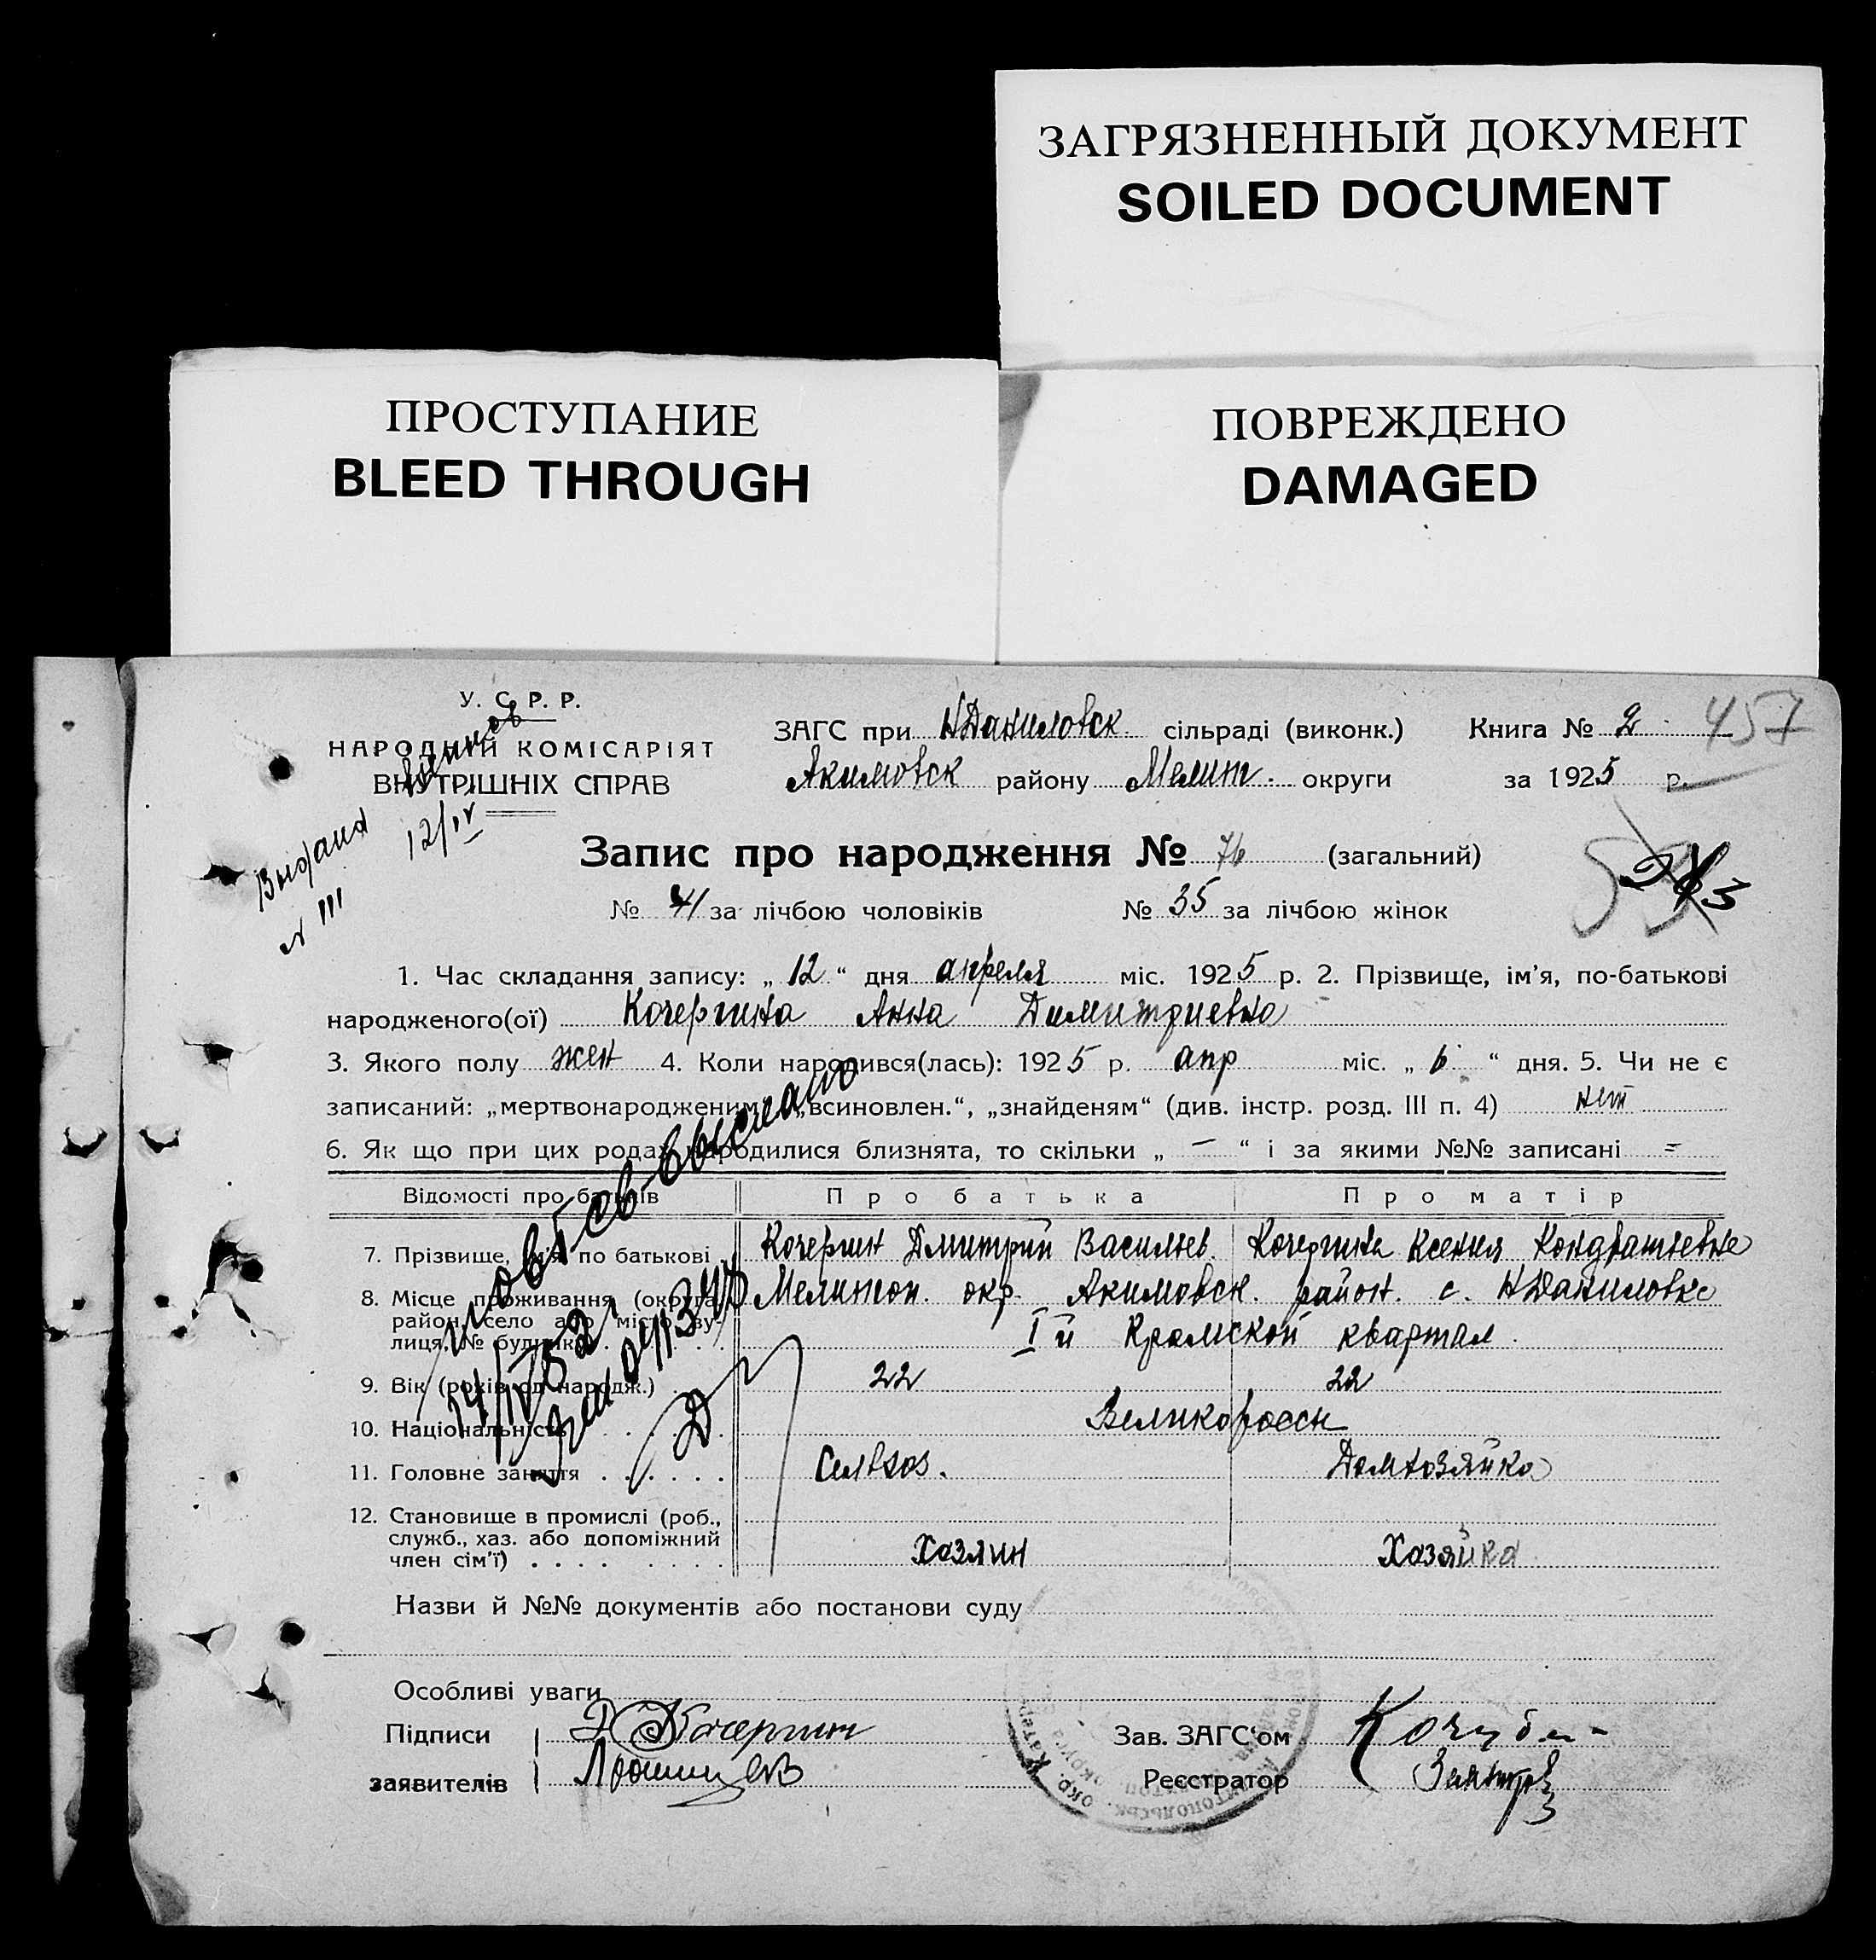 ЗАГРЯЗНЕННЫЙ ДОКУМЕНТ
SOILED DOCUMENT
ПРОСТУПАНИЕ
BLEED THROUGH
ПОВРЕЖДЕНО
DAMAGED
457
У. С. Р. Р.
НАРОДНИЙ КОМІСАРІЯТ
ВНУТРІШНІХ СПРАВ
ЗАГС при НДаниловск сільраді (виконк.) Книга № 2
Акимовск району Мелит. округи за 1925 р.
Выдана
12/IV
N III
Запис про народження № 76 (загальний)
№ 41 за лічбою чоловіків № 35 за лічбою жінок
1. Час складання запису: „ 12 “ дня апреля міс. 1925 р. 2. Прізвище, ім’я, по-батькові
народженого(ої) Кочергина Анна Димитриевна
3. Якого полу жен 4. Коли народився(лась): 1925 р. апр міс. „ 6 “ дня. 5. Чи не є
записаний: „мертвонародженим“, „всиновлен.“, „знайденям“ (див. інстр. розд. III п. 4) нет
6. Як що при цих родах народилися близнята, то скільки „ — “ і за якими №№ записані =
Відомості про батьків Про батька Про матір
7. Прізвище, ім’я по батькові Кочергин Дмитрий Васильев. Кочергина Ксения Кондратьевна
8. Місце проживання (округа, район, село або місто, вулиця, № будинк.) Мелитоп. окр. Акимовск. район. с. НДаниловке
I й Крамской квартал.
9. Вік (років од народж.) 22 22
10. Національність Великоросси
11. Головне заняття Сельхоз. Домхозяйка
12. Становище в промислі (роб., служб., хаз. або допоміжний член сім’ї) Хозяин Хозяйка
Назви й №№ документів або постанови суду
Особливі уваги
Підписи Д Кочергин Зав. ЗАГС‘ом
заявителів Реєстратор